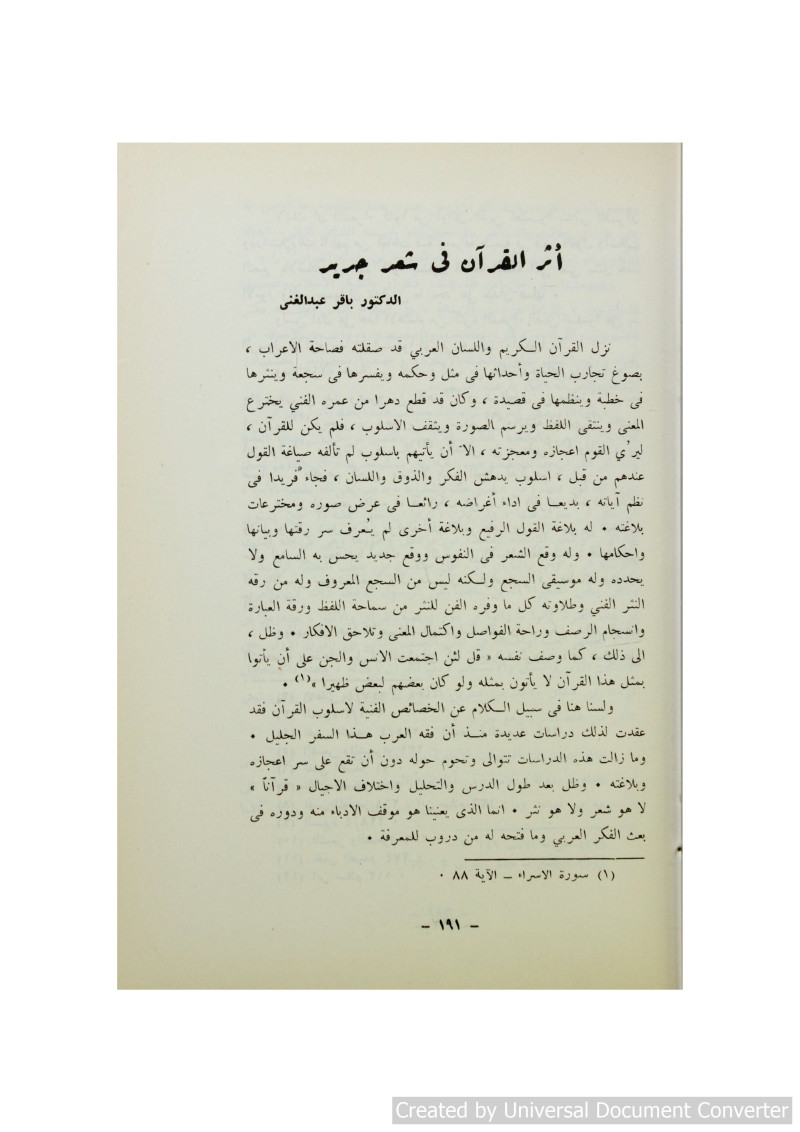 أثر القرآن فى شعر جرير
الدكتور باقر عبدالغنى
نزل القرآن الـكريم واللسان العربي قد صقلته فصاحة الاعراب ،
بصوغ تجارب الحياة وأحداثها فى مثل وحكمه ويفسرها فى سجعة وينثرها
فى خطبة وينظمها فى قصيدة ، وكان قد قطع دهرا من عمره الفني يخترع
المعنى وينتقى اللفظ ويرسم الصورة ويثقف الاسلوب ، فلم يكن للقرآن ،
ليرُي القوم اعجازه ومعجزته ، الا أن يأتيهم باسلوب لم تألفه صياغة القول
عندهم من قبل ، اسلوب يدهش الفكر والذوق واللسان ، فجاء فريدا فى
نظم آياته ، بديعـا فى اداء أغراضه ، رائعـا فى عرض صوره ومخترعات
بلاغته • له بلاغة القول الرفيع وبلاغة أخرى لم يُعرف سر رقتها وبيانها
واحكامها • وله وقع الشعر فى النفوس ووقع جديد يحس به السامع ولا
يحدده وله موسيقى السجع ولـكنه ليس من السجع المعروف وله من رقه
النثر الفني وطلاوته كل ما وفره الفن للنثر من سماحة اللفظ ورقة العبارة
وانسجام الرصف وراحة الفواصل واكتمال المعنى وتلاحق الافكار • وظل ،
الى ذلك ، كما وصف نفسه « قل لئن اجتمعت الانس والجن على أن يأتوا
بمثل هذا القرآن لا يأتون بمثله ولو كان بعضهم لبعض ظهيرا »(١) •
ولسنا هنا فى سبيل الـكلام عن الخصائص الفنية لاسلوب القرآن فقد
عقدت لذلك دراسات عديدة منـذ أن فقه العرب هـذا السفر الجليل •
وما زالت هذه الدراسات تتوالى وتحوم حوله دون أن تقع على سر اعجازه
وبلاغته • وظل بعد طول الدرس والتحليل واختلاف الاجيال « قرآناً »
لا هو شعر ولا هو نثر • انما الذى يعنينا هو موقف الادباء منه ودوره فى
بعث الفكر العربي وما فتحه له من دروب للمعرفة •
(١) سورة الاسراء – الآية ٨٨ •
– ١٩١ –
Created by Universal Document Converter